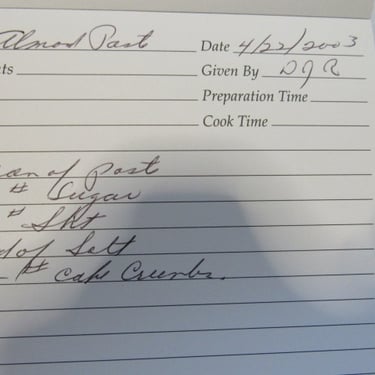 Almod Past Date 4/22/2003
ts Given By DJR
Preparation Time
Cook Time
of Past
# Sugar
# Skt
of Salt
# Cake Crumbs.